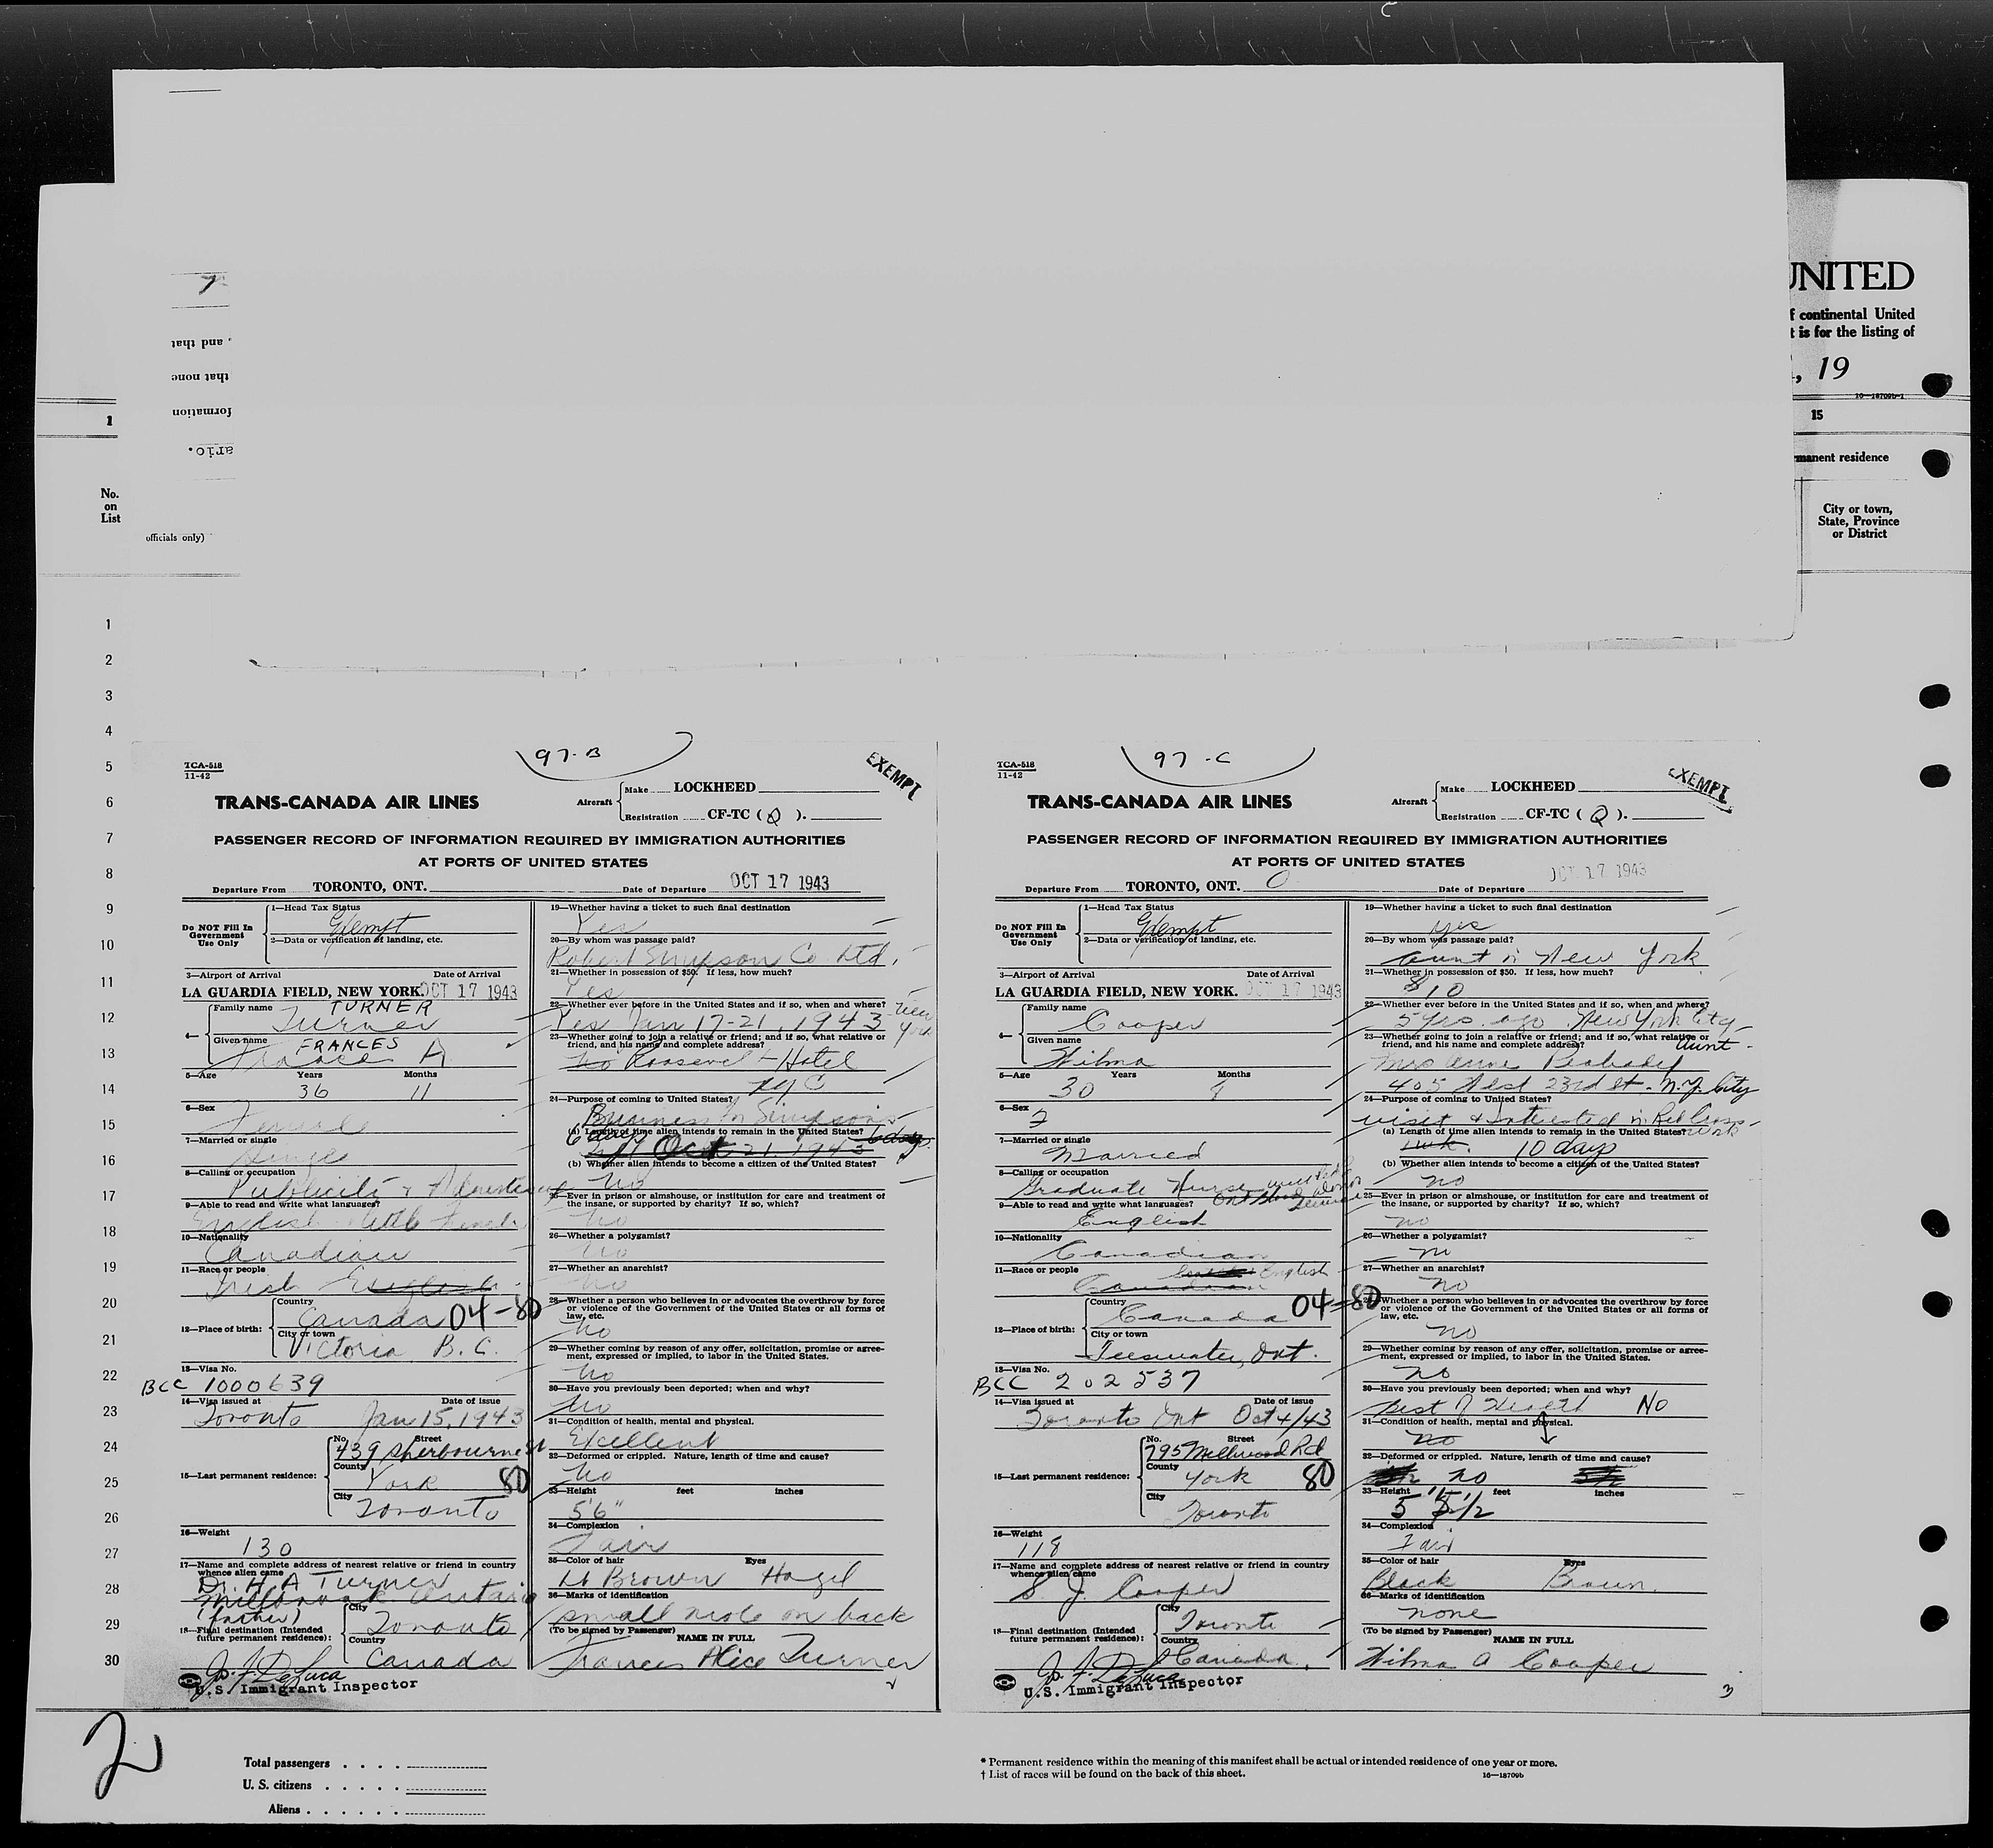 UNITED
f continental United
t is for the listing of
, 19
16—18709b-1
, and that
that none
formation
ario.
1
15
manent residence
No.
on
List
City or town,
State, Province
or District
officials only)
1
2
3
4
5
6
7
8
9
10
11
12
13
14
15
16
17
18
19
20
21
22
23
24
25
26
27
28
29
30
97-B
TCA-518
11-42
EXEMPT
TRANS-CANADA AIR LINES
Aircraft
Make LOCKHEED
Registration CF-TC ( Q ).
PASSENGER RECORD OF INFORMATION REQUIRED BY IMMIGRATION AUTHORITIES
AT PORTS OF UNITED STATES
Departure From TORONTO, ONT. Date of Departure OCT 17 1943
Do NOT Fill In
Government
Use Only
1—Head Tax Status
Exempt
2—Data or verification of landing, etc.
3—Airport of Arrival Date of Arrival
LA GUARDIA FIELD, NEW YORK. OCT 17 1943
4— Family name TURNER
Turner
Given name FRANCES
Frances A
5—Age Years Months
36 11
6—Sex
Female
7—Married or single
Single
8—Calling or occupation
Publicity & Advertising
9—Able to read and write what languages?
English little French
10—Nationality
Canadian
11—Race or people
Irish English
12—Place of birth:
Country
Canada 04-80
City or town
Victoria B.C.
13—Visa No.
BCC 1000639
14—Visa issued at Date of issue
Toronto Jan 15, 1943
15—Last permanent residence:
No. Street
439 Sherbourne St
County
York 80
City
Toronto
16—Weight
130
17—Name and complete address of nearest relative or friend in country
whence alien came
Dr. H A Turner
Millbrook Ontario
(father)
18—Final destination (Intended
future permanent residence):
City
Toronto
Country
Canada
Jos. F. DeLuca
U.S. Immigrant Inspector
19—Whether having a ticket to such final destination
Yes
20—By whom was passage paid?
Robert Simpson Co Ltd.
21—Whether in possession of $50. If less, how much?
Yes
22—Whether ever before in the United States and if so, when and where?
Yes Jan 17-21, 1943 New York
23—Whether going to join a relative or friend; and if so, what relative or
friend, and his name and complete address?
No Roosevelt Hotel
NYC
24—Purpose of coming to United States?
Business for Simpsons
(a) Length of time alien intends to remain in the United States?
6 days Oct 21, 1943 6 days
(b) Whether alien intends to become a citizen of the United States?
No
25—Ever in prison or almshouse, or institution for care and treatment of
the insane, or supported by charity? If so, which?
No
26—Whether a polygamist?
No
27—Whether an anarchist?
No
28—Whether a person who believes in or advocates the overthrow by force
or violence of the Government of the United States or all forms of
law, etc.
No
29—Whether coming by reason of any offer, solicitation, promise or agree-
ment, expressed or implied, to labor in the United States.
No
30—Have you previously been deported; when and why?
No
31—Condition of health, mental and physical.
Excellent
32—Deformed or crippled. Nature, length of time and cause?
No
33—Height feet inches
5'6"
34—Complexion
Fair
35—Color of hair Eyes
Lt Brown Hazel
36—Marks of identification
small mole on back
(To be signed by Passenger)
NAME IN FULL
Frances Alice Turner
2
97-C
TCA-518
11-42
EXEMPT
TRANS-CANADA AIR LINES
Aircraft
Make LOCKHEED
Registration CF-TC ( Q ).
PASSENGER RECORD OF INFORMATION REQUIRED BY IMMIGRATION AUTHORITIES
AT PORTS OF UNITED STATES
Departure From TORONTO, ONT. Date of Departure OCT 17 1943
Do NOT Fill In
Government
Use Only
1—Head Tax Status
Exempt
2—Data or verification of landing, etc.
3—Airport of Arrival Date of Arrival
LA GUARDIA FIELD, NEW YORK. OCT 17 1943
4— Family name
Cooper
Given name
Wilma
5—Age Years Months
30 9
6—Sex
F
7—Married or single
Married
8—Calling or occupation
Graduate Nurse with Red
9—Able to read and write what languages?
English
10—Nationality
Canadian
11—Race or people
English
Canadian
12—Place of birth:
Country
Canada 04-80
City or town
Teeswater, Ont.
13—Visa No.
BCC 202537
14—Visa issued at Date of issue
Toronto Ont Oct 4/43
15—Last permanent residence:
No. Street
795 Millwood Rd
County
York 80
City
Toronto
16—Weight
118
17—Name and complete address of nearest relative or friend in country
whence alien came
S. J. Cooper
18—Final destination (Intended
future permanent residence):
City
Toronto
Country
Canada
Jos. F. DeLuca
U.S. Immigrant Inspector
19—Whether having a ticket to such final destination
yes
20—By whom was passage paid?
Aunt in New York
21—Whether in possession of $50. If less, how much?
$10
22—Whether ever before in the United States and if so, when and where?
5 yrs. ago New York City
23—Whether going to join a relative or friend; and if so, what relative or
friend, and his name and complete address? Aunt
Mrs Anne Peabody
405 West 23rd St. N.Y. City
24—Purpose of coming to United States?
visit & Interested in Red Cross work
(a) Length of time alien intends to remain in the United States?
1 wk. 10 days
(b) Whether alien intends to become a citizen of the United States?
no
25—Ever in prison or almshouse, or institution for care and treatment of
the insane, or supported by charity? If so, which?
no
26—Whether a polygamist?
no
27—Whether an anarchist?
no
28—Whether a person who believes in or advocates the overthrow by force
or violence of the Government of the United States or all forms of
law, etc.
no
29—Whether coming by reason of any offer, solicitation, promise or agree-
ment, expressed or implied, to labor in the United States.
no
30—Have you previously been deported; when and why?
Best of Health No
31—Condition of health, mental and physical.
no
32—Deformed or crippled. Nature, length of time and cause?
no
33—Height feet inches
5' 5 1/2
34—Complexion
Fair
35—Color of hair Eyes
Black Brown.
36—Marks of identification
none
(To be signed by Passenger)
NAME IN FULL
Wilma A Cooper
3
2
Total passengers
U. S. citizens
Aliens
* Permanent residence within the meaning of this manifest shall be actual or intended residence of one year or more.
† List of races will be found on the back of this sheet.
16—18709b